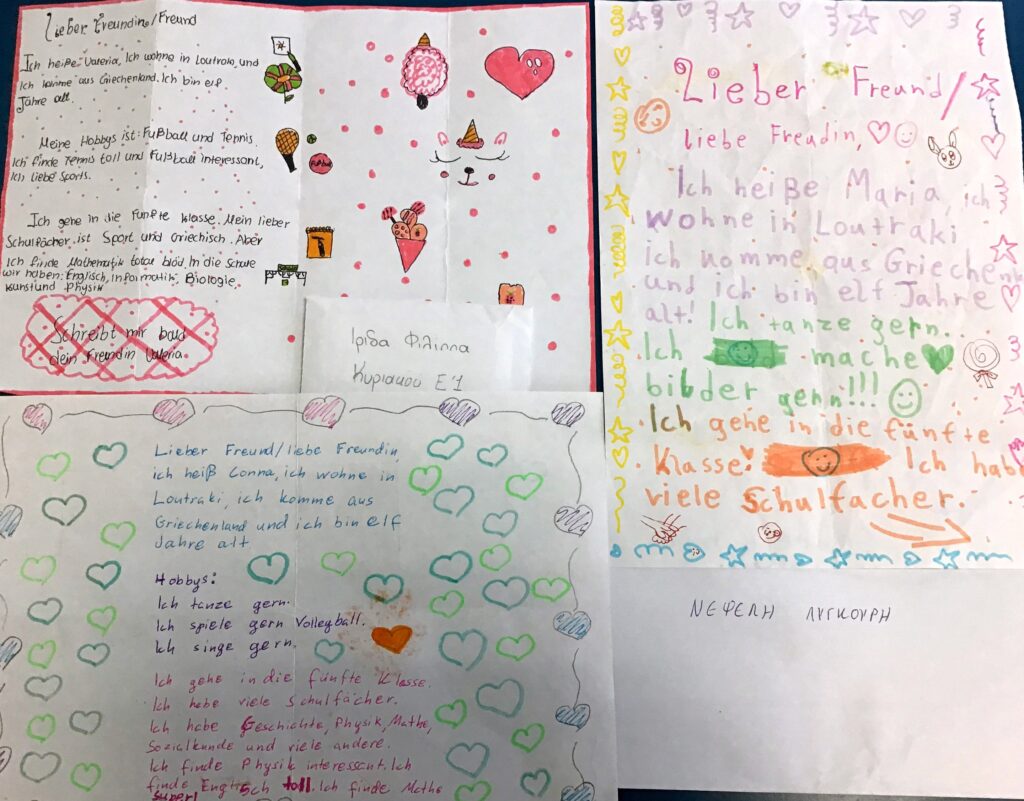 Lieber Freundin/Freund
Ich heiße Valeria, Ich wohne in Loutraki, und
Ich komme aus Griechenland. Ich bin elf
Jahre alt.
Meine Hobbys ist: Fußball und Tennis.
Ich finde Tennis toll und Fußball interessant,
Ich liebe Sports.
Ich gehe in die Fünfte Klasse. Mein lieber
Schulfächer ist Sport und Griechisch. Aber
Ich finde Mathematik total blöd. In die Schule
wir haben: Englisch, Informatik, Biologie,
Kunst und Physik
Schreibt mir bald
dein Freundin Valeria
Ιριδα Φιλιππα
Κυριακου Ε'1
Lieber Freund/
liebe Freudin,
Ich heiße Maria, ich
wohne in Loutraki
ich komme aus Griechen
und ich bin elf Jahre
alt! Ich tanze gern.
Ich mache
bilder gern!!!
Ich gehe in die fünfte
Klasse! Ich hab
viele Schulfacher.
ΝΕΦΕΛΗ ΛΥΓΚΟΥΡΗ
Lieber Freund/liebe Freundin,
ich heiß Conna, ich wohne in
Loutraki, ich komme aus
Griechenland und ich bin elf
Jahre alt.
Hobbys:
Ich tanze gern.
Ich spiele gern Volleyball.
Ich singe gern.
Ich gehe in die fünfte Klasse.
Ich habe viele Schulfächer.
Ich habe Geschichte, Physik, Mathe,
Sozialkunde und viele andere.
Ich finde Physik interessant. Ich
finde Englisch toll. Ich finde Mathe
super!